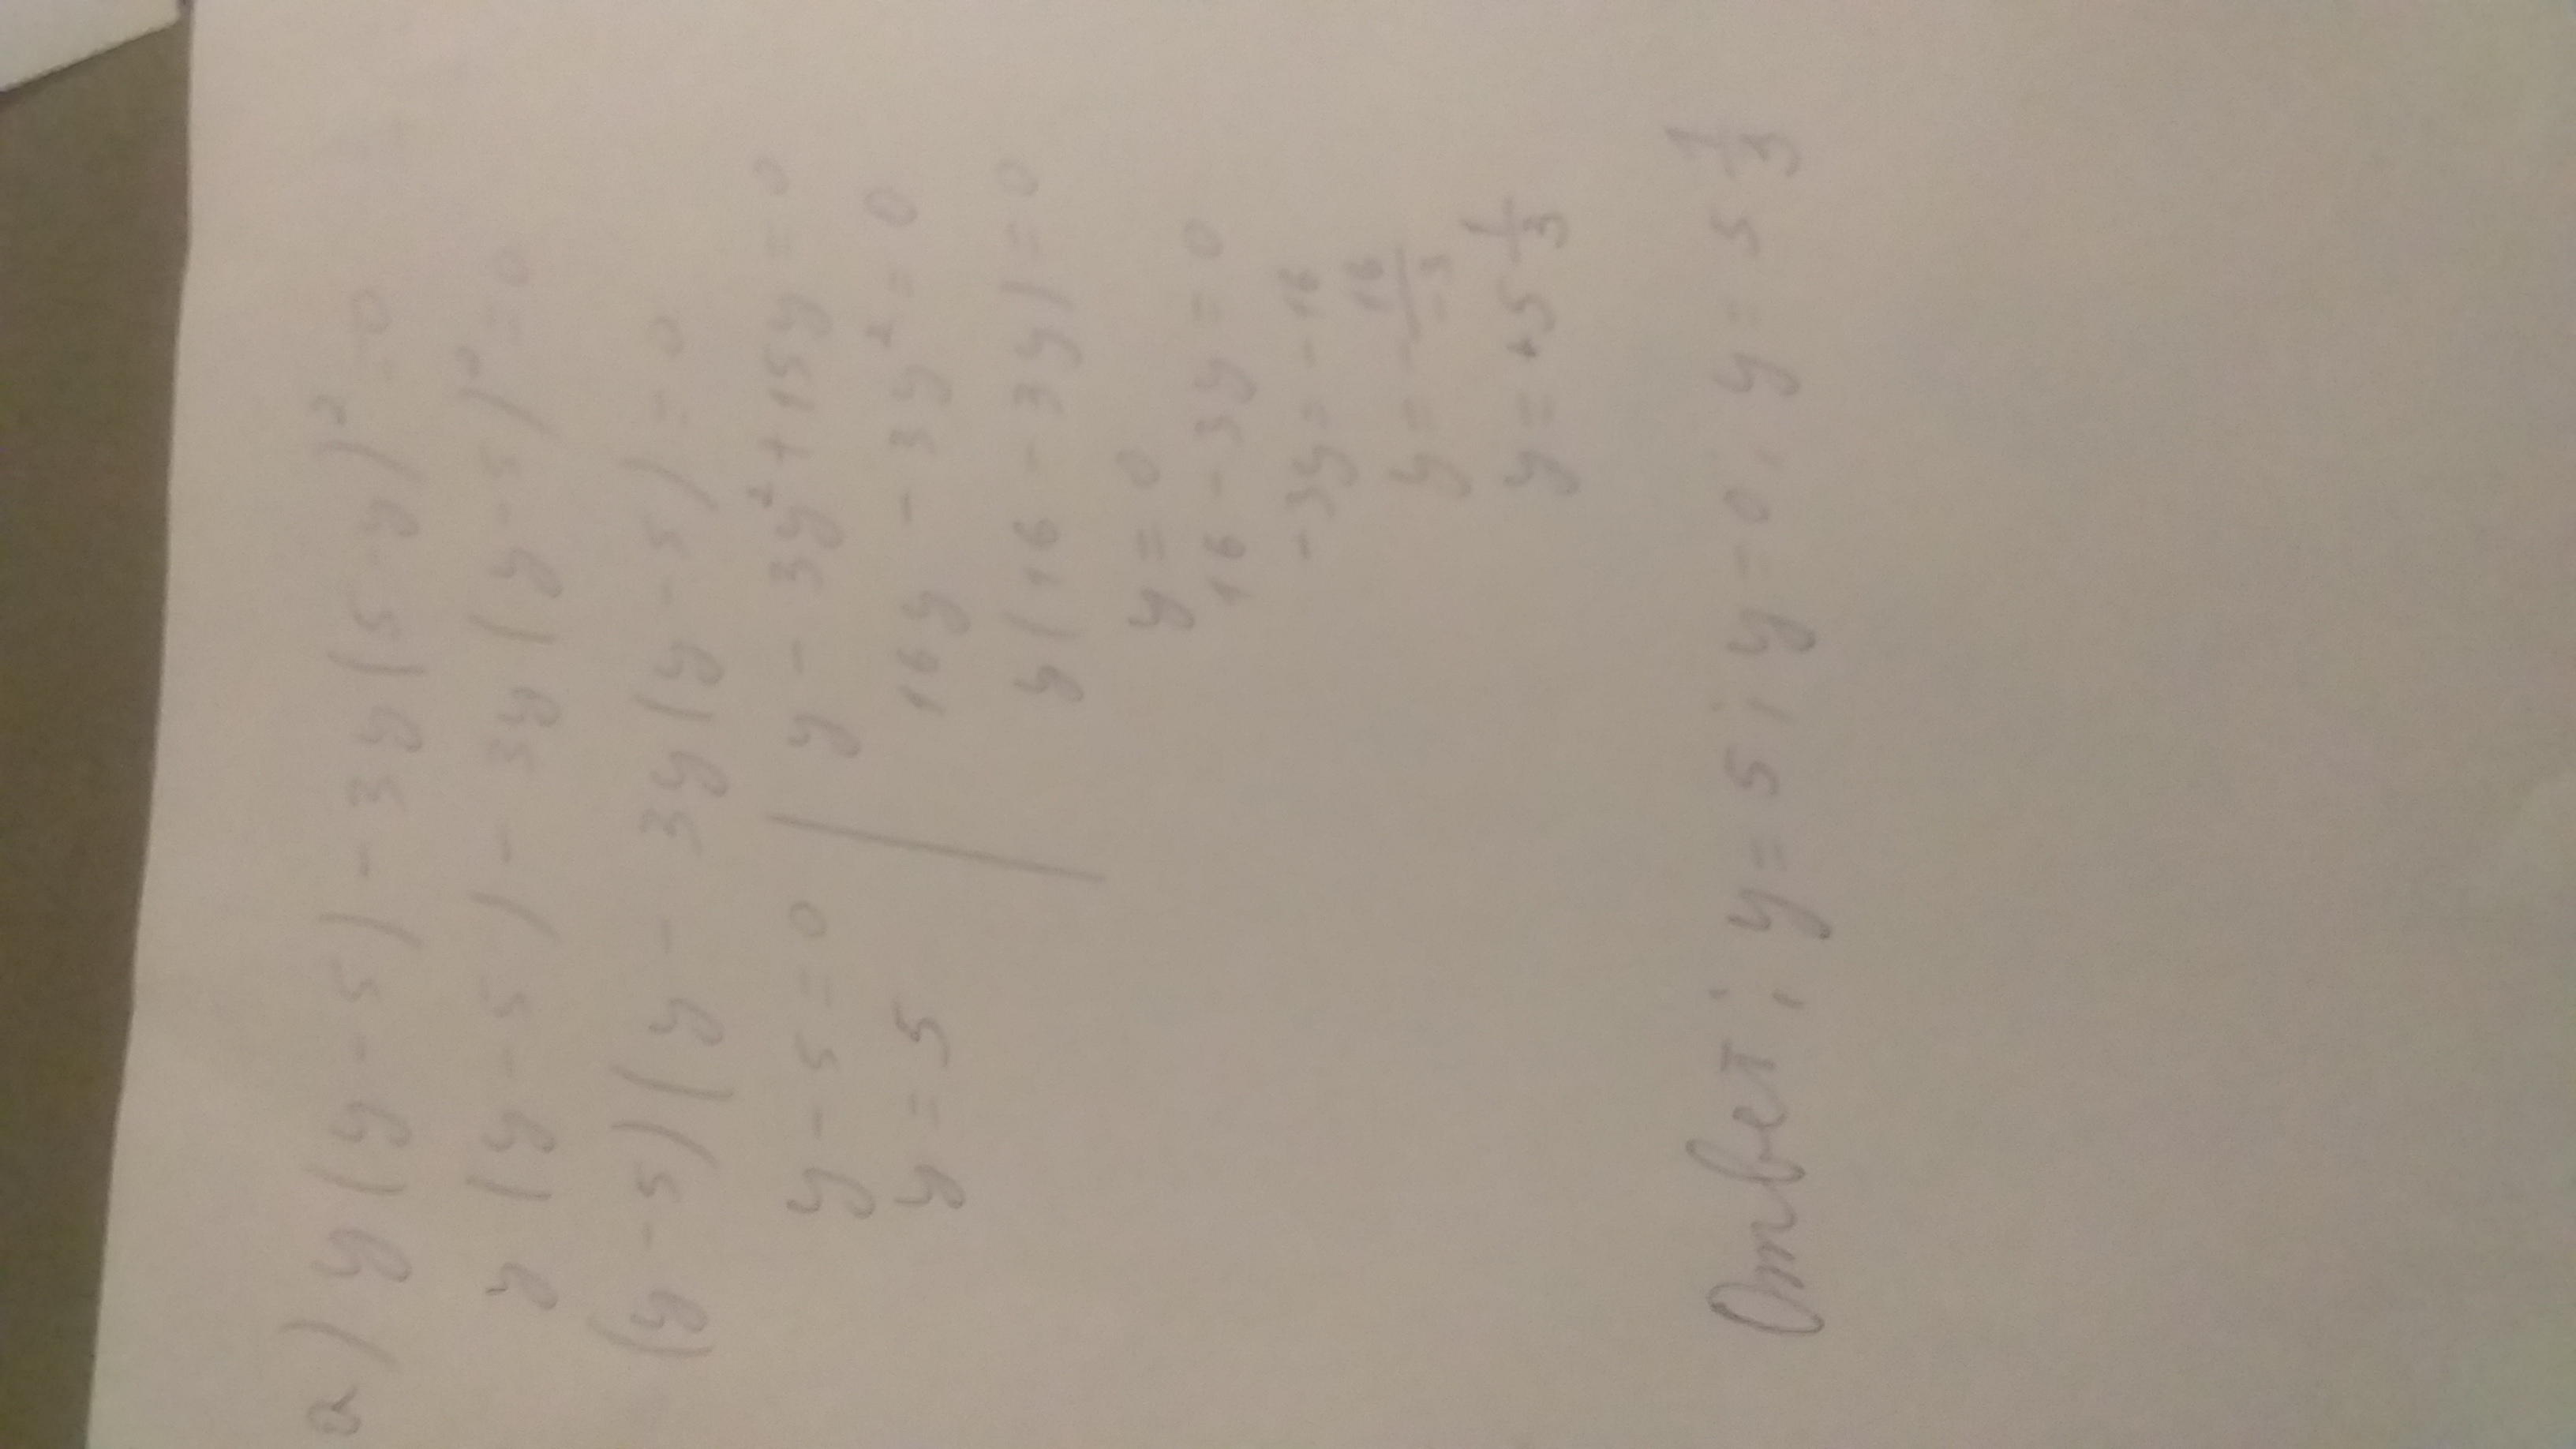 а) y(y-5)-3y(5-y)²=0
y(y-5)-3y(y-5)²=0
(y-5)(y-3y(y-5)=0
y-5=0 | y-3y²+15y=0
y=5 16y-3y²=0
y(16-3y)=0
y=0
16-3y=0
-3y=-16
y=-16/-3
y=+5 1/3
Ответ: y=5; y=0; y=5 1/3